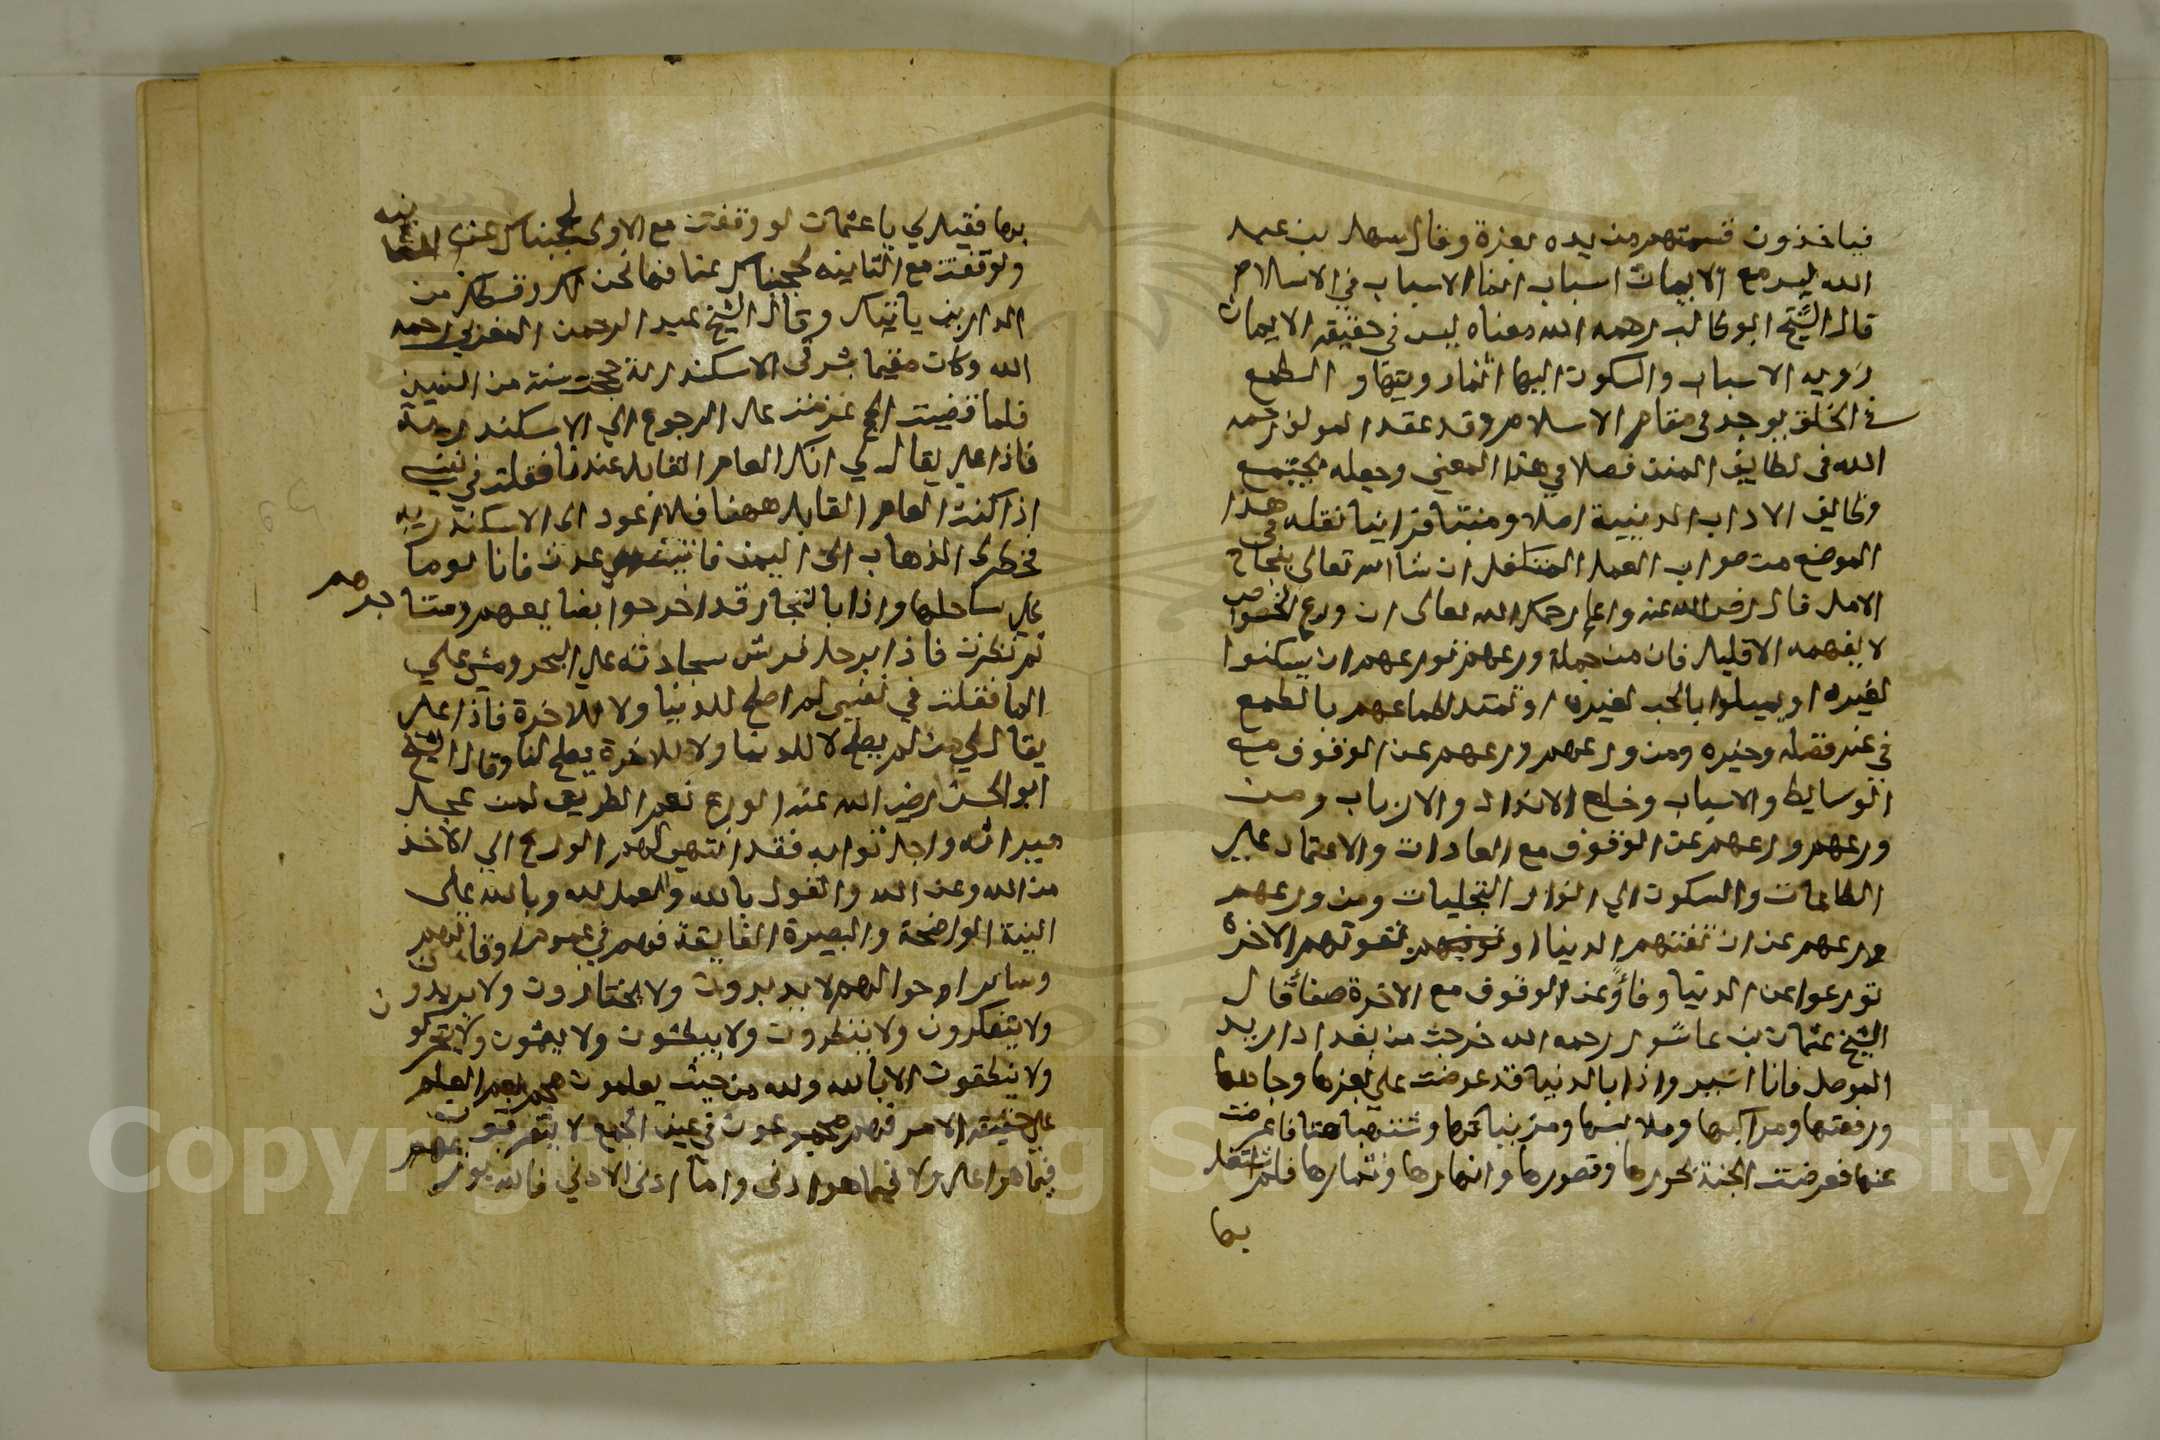 فياخذون قسمتهم من يده بعزة وقال سهل بن عبد
الله ليس مع الايمان اسباب انما الاسباب في الاسلام
قال الشيخ ابو طالب رحمه الله معناه ليس في حقيقه الايمان
رويه الاسباب والسكون اليها انما رويتها و الطمع
في الخلق يوجد في مقام الاسلام وقد عقد المولف رحمه
الله في لطايف المنن فصلا في هذا المعني وجعله مجتمع
وظايف الاداب الدينية اصلا ومبنا فراينا نقله في هذا
الموضع من صواب العمل المتكفل ان شا الله تعالى بنجاح
الامل قال رضي الله عنه واعلم رحمك الله تعالى ان ورع الخصوص
لا يفهمه الا قليل فان من جملة ورعهم تورعهم ان يسكنوا
لغيره او يميلوا بالحب لغيره او تمتد اطماعهم بالطمع
في غير فضله وخيره ومن ورعهم ورعهم عن الوقوف مع
الوسايط والاسباب وخلع الانداد والارباب ومن
ورعهم ورعهم عن الوقوف مع العادات والاعتماد على
الطاعات والسكون الي انوار التجليات ومن ورعهم
ورعهم عن ان تفتنهم الدنيا او توقفهم الاخرة
تورعوا عن الدنيا وفاً وعن الوقوف مع الاخرة صفاً قال
الشيخ عثمان بن عاشور رحمه الله خرجت من بغداد اريد
الموصل فانا اسير واذا بالدنيا قد عرضت علي بعزها وجاهها
ورفعتها ومراكبها وملابسها ومزيناتها ومشتهياتها فاعرضت
عنها فعرضت الجنة بحورها وقصورها وانهارها وثمارها فلم اشتغل
بها
بها فقيل لي يا عثمان لو وقفت مع الاولى لحجبناك عن الثانيه
ولو وقفت مع الثانيه لحجبناك عنا فها نحن لك وقسطك من
الدارين ياتيك وقال الشيخ عبد الرحمن المغربي رحمه
الله وكان مقيما بشرقي الاسكندرية حججت سنة من السنين
فلما قضيت الحج عزمت على الرجوع الي الاسكندرية
فاذا علي يقال لي انك العام القابل عندنا فقلت في نفسي
اذا كنت العام القابل ههنا فلا اعود الى الاسكندريه
فخطر لي الذهاب الى اليمن فاتيت عدن فانا يوما
على ساحلها واذا بالتجار قد اخرجوا بضايعهم ومتاجرهم
ثم نظرت فاذا برجل فرش سجادته على البحر ومشى علي
الما فقلت في نفسي لم اصلح للدنيا ولا للاخرة فاذا علي
يقال لي من لم يصلح لا للدنيا ولا للاخرة يصلح لنا وقال الشيخ
ابو الحسن رضي الله عنه الورع نعم الطريق لمن عجل
ميراثه واجل ثوابه فقد انتهى لهم الورع الي الاخذ
من الله وعن الله والقول بالله والعمل لله وبالله على
البينة الواضحة والبصيرة الفايقة فهم في عموم اوقاتهم
وساير احوالهم لا يدبرون ولا يختارون ولا يريدون
ولا يتفكرون ولا ينظرون ولا يبطشون ولا يمشون ولا يتحركون
ولا ينطقون الا بالله ولله من حيث يعلمون هجم بهم العلم
على حقيقه الامر فهم مجموعون في عين الجمع لا يتفرقون
فيما هو اعلى ولا فيما هو ادنى واما ادنى الادني فالله يورعهم